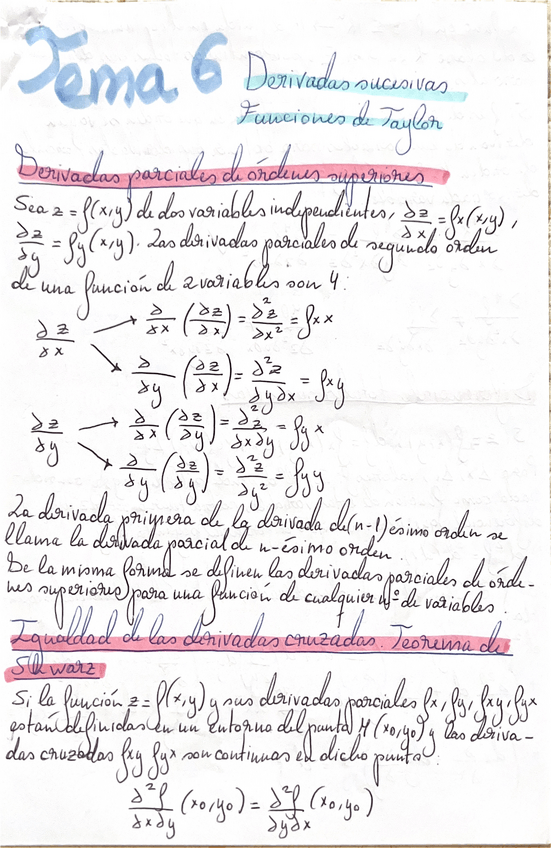 Tema 6
Derivadas sucesivas
Funciones de Taylor
Derivadas parciales de órdenes superiores
Sea z = f(x,y) de dos variables independientes, ∂z/∂x = fx(x,y),
∂z/∂y = fy(x,y). Las derivadas parciales de segundo orden
de una función de 2 variables son 4:
∂z/∂x → ∂/∂x (∂z/∂x) = ∂²z/∂x² = fxx
→ ∂/∂y (∂z/∂x) = ∂²z/∂y∂x = fxy
∂z/∂y → ∂/∂x (∂z/∂y) = ∂²z/∂x∂y = fyx
→ ∂/∂y (∂z/∂y) = ∂²z/∂y² = fyy
La derivada primera de la derivada de (n-1)ésimo orden se
llama la derivada parcial de n-ésimo orden.
De la misma forma se definen las derivadas parciales de órde-
nes superiores para una función de cualquier nº de variables.
Igualdad de las derivadas cruzadas. Teorema de
Shwarz
Si la función z = f(x,y) y sus derivadas parciales fx, fy, fxy, fyx
están definidas en un entorno del punto M(x0,y0) y las deriva-
das cruzadas fxy fyx son continuas en dicho punto:
∂²f/∂x∂y (x0,y0) = ∂²f/∂y∂x (x0,y0)